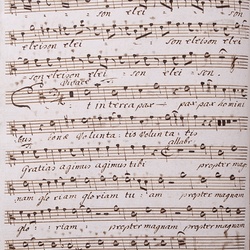 eleison elei son
eleison elei son eleison elei
son eleison elei son.
Vivace
t in terra pax pax pax homini
bus bonæ volunta: tis volunta: tis
allabr:
Gratias agimus agimus tibi propter mag
nam gloriam gloriam tuam propter magnam
gloriam propter magnam propter magnam